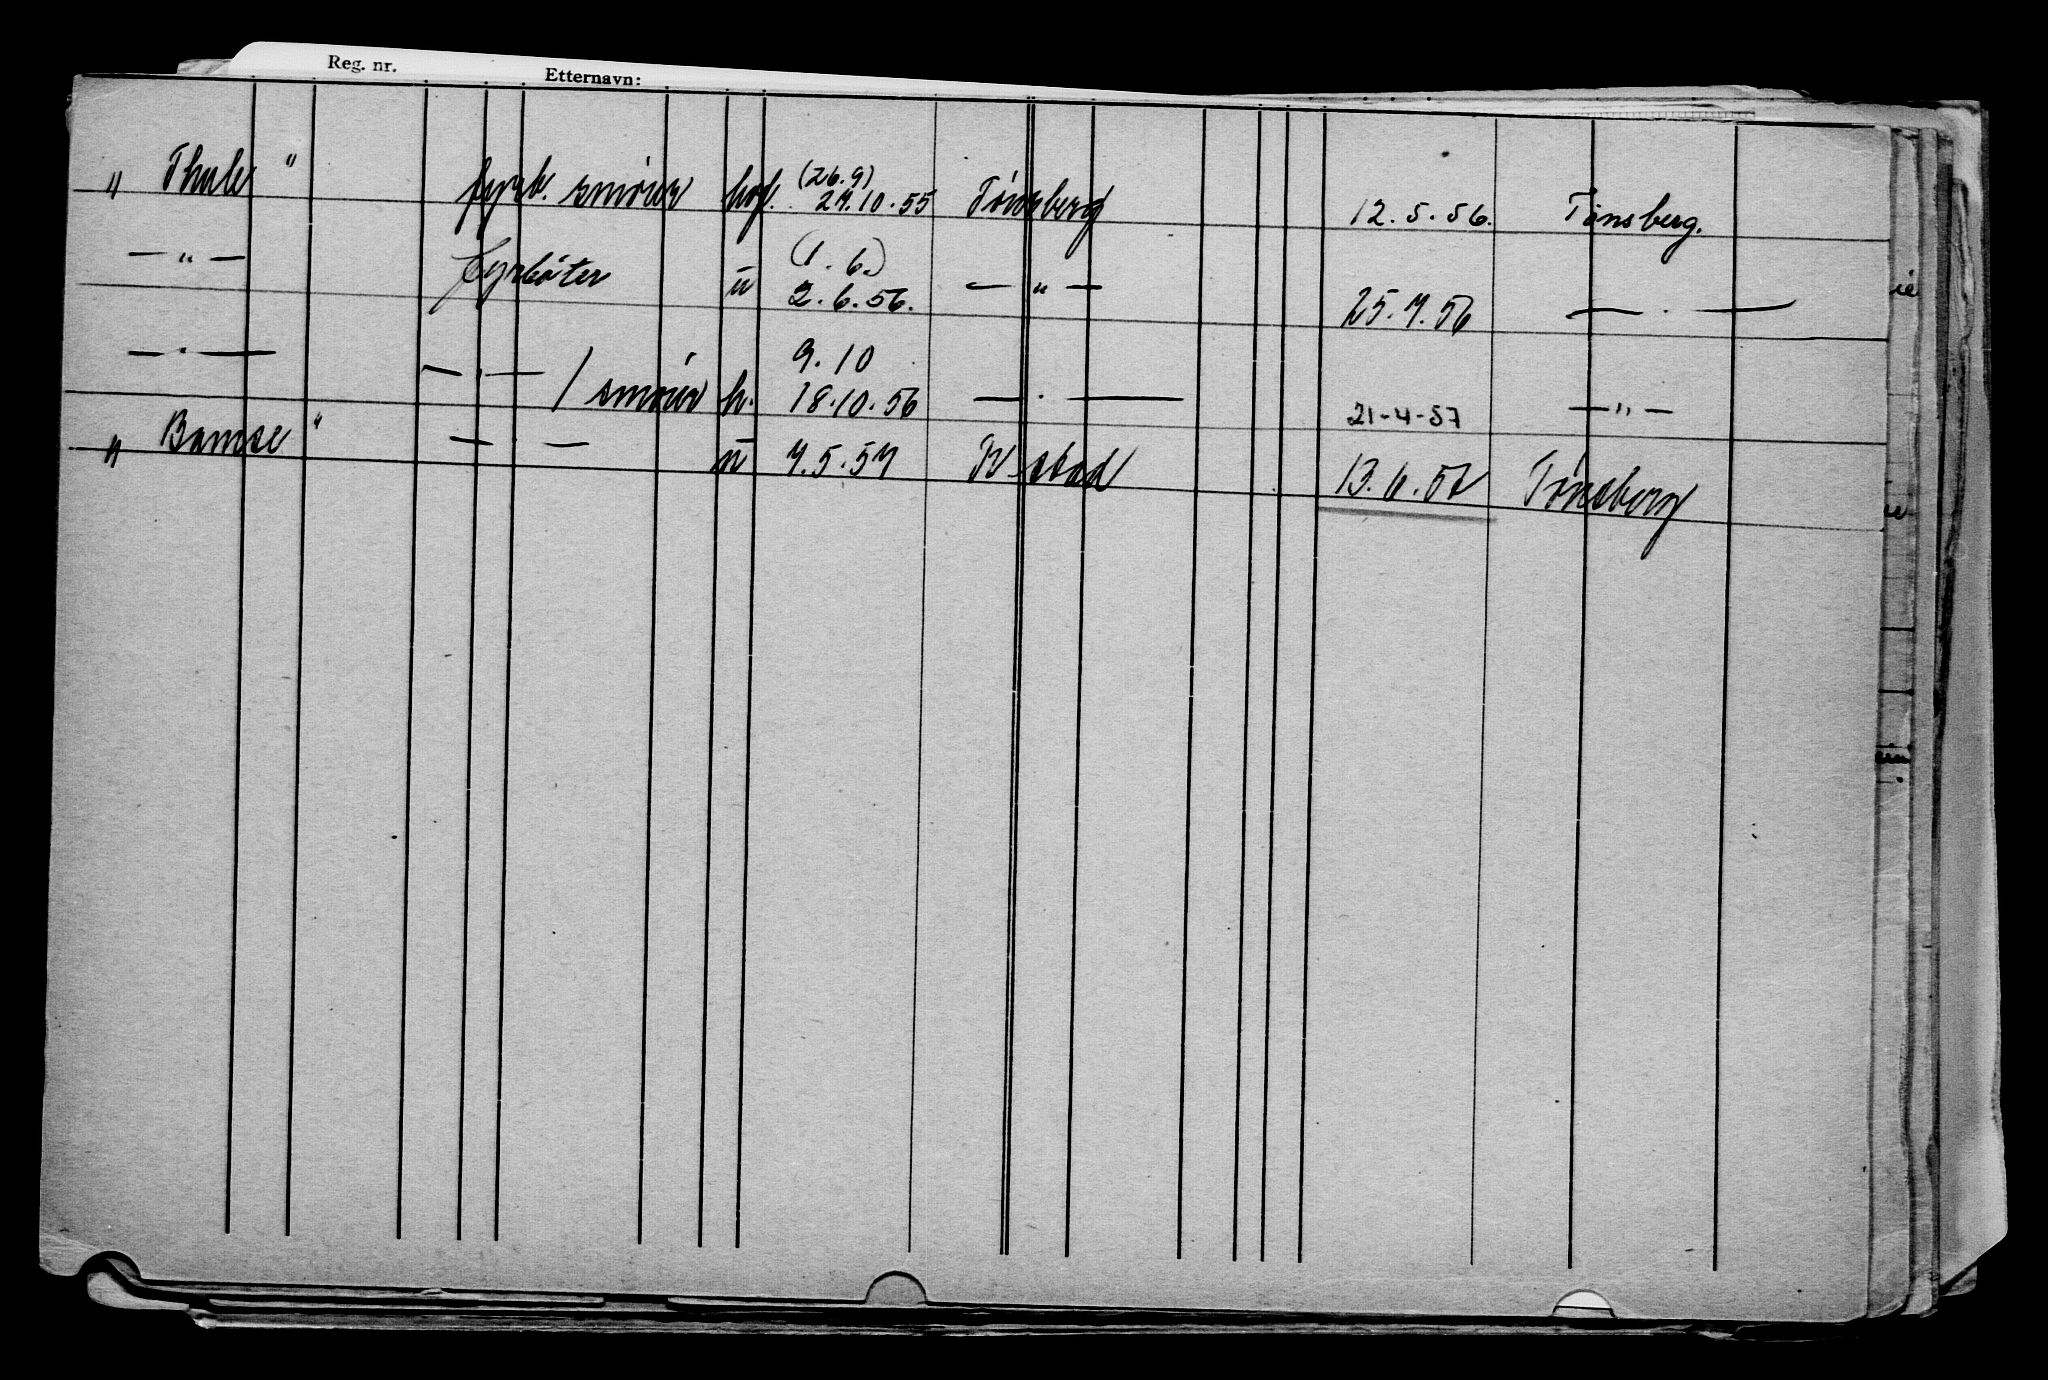 Reg. nr. Etternavn:
„ Thule " fyrb. smører hvf. (26.9) 29.10.55 Tønsberg 12.5.56. Tønsberg.
— " — fyrbøter u (1.6.) 2.6.56. — " — 25.7.56 — . —
— . — — . — / smører h. 9.10 18.10.56 — . — 21-4-57 — " —
„ Bamse " — . — u 7.5.57 K-stad 13.6.57 Tønsberg